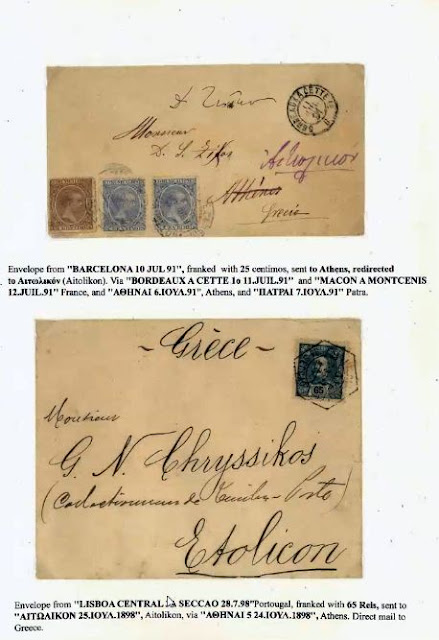 BORDEAUX A CETTE
Monsieur
D. S. Ziffos
Athènes
Grèce
Envelope from "BARCELONA 10 JUL 91", franked with 25 centimos, sent to Athens, redirected
to Αιτωλικόν (Aitolikon). Via "BORDEAUX A CETTE 1o 11.JUIL.91" and "MACON A MONTCENIS
12.JUIL.91" France, and "ΑΘΗΝΑΙ 6.ΙΟΥΛ.91", Athens, and "ΠΑΤΡΑΙ 7.ΙΟΥΛ.91" Patra.
- Grèce -
65
Monsieur
G. N. Chryssikos
Etolicon
Envelope from "LISBOA CENTRAL SECCAO 28.7.98" Portougal, franked with 65 Reis, sent to
"ΑΙΤΩΛΙΚΟΝ 25.ΙΟΥΛ.1898", Aitolikon, via "ΑΘΗΝΑΙ 5 24.ΙΟΥΛ.1898", Athens. Direct mail to
Greece.